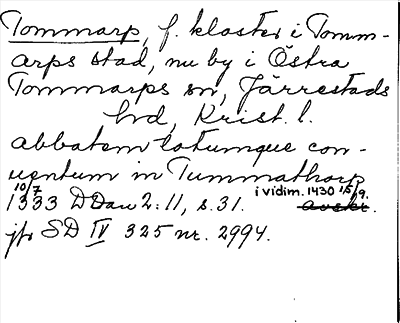 Tommarp, f. kloster i Tomm-
arps stad, nu by i Östra
Tommarps sn, Järrestads
hd, Krist. l.
abbatem totumque con-
uentum in Tummathorp
10/7 1333 DDan 2:11, s. 31. i vidim. 1430 15/9. avskr.
jfr SD IV 325 nr. 2994.